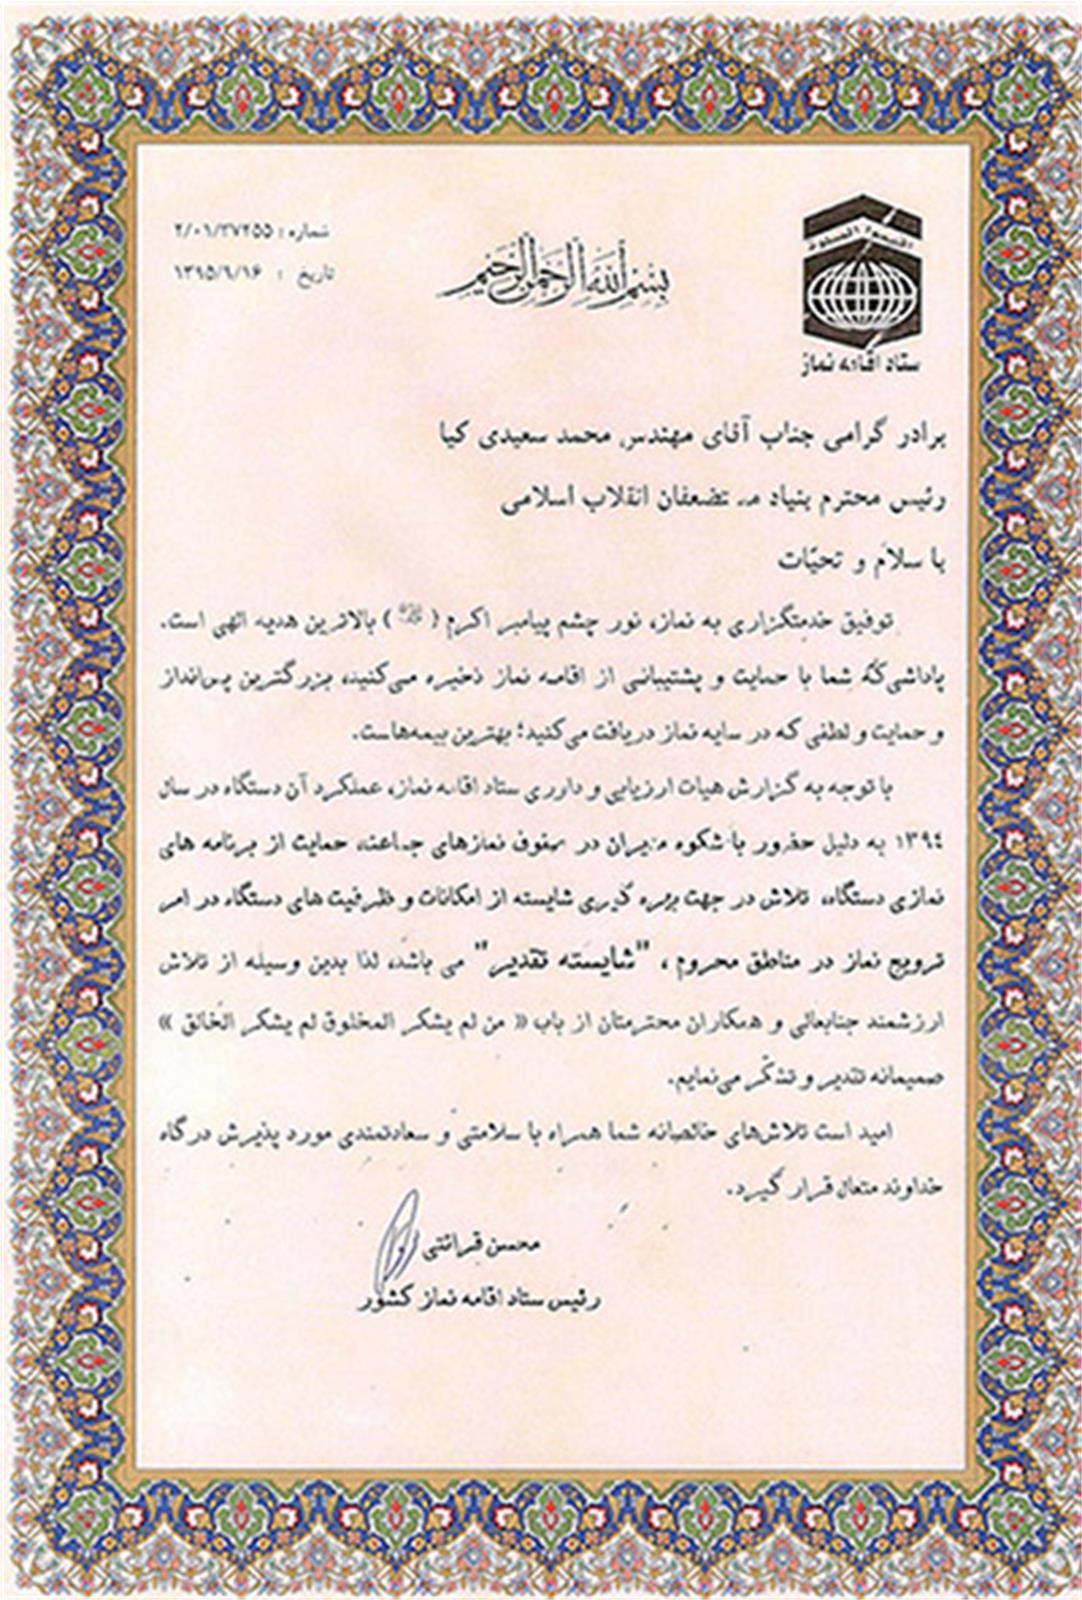 شماره : ۲/۰۱/۳۷۲۵۵
تاریخ : ۱۳۹۵/۶/۱۶
بسم الله الرحمن الرحیم
ستاد اقامه نماز
برادر گرامی جناب آقای مهندس محمد سعیدی کیا
رئیس محترم بنیاد مستضعفان انقلاب اسلامی
با سلام و تحیّات
توفیق خدمتگزاری به نماز، نور چشم پیامبر اکرم ( ) بالاترین هدیه الهی است.
پاداشی که شما با حمایت و پشتیبانی از اقامه نماز ذخیره می‌کنید، بزرگترین پس‌انداز
و حمایت و لطفی که در سایه نماز دریافت می‌کنید؛ بهترین بیمه‌هاست.
با توجه به گزارش هیات ارزیابی و داوری ستاد اقامه نماز، عملکرد آن دستگاه در سال
۱۳۹٤ به دلیل حضور با شکوه مدیران در صفوف نمازهای جماعت، حمایت از برنامه های
نمازی دستگاه، تلاش در جهت بهره گیری شایسته از امکانات و ظرفیت های دستگاه در امر
ترویج نماز در مناطق محروم ، "شایسته تقدیر" می باشد، لذا بدین وسیله از تلاش
ارزشمند جنابعالی و همکاران محترمتان از باب « من لم یشکر المخلوق لم یشکر الخالق »
صمیمانه تقدیر و تشکّر می‌نمایم.
امید است تلاش‌های خالصانه شما همراه با سلامتی و سعادتمندی مورد پذیرش درگاه
خداوند متعال قرار گیرد.
محسن قرائتی
رئیس ستاد اقامه نماز کشور